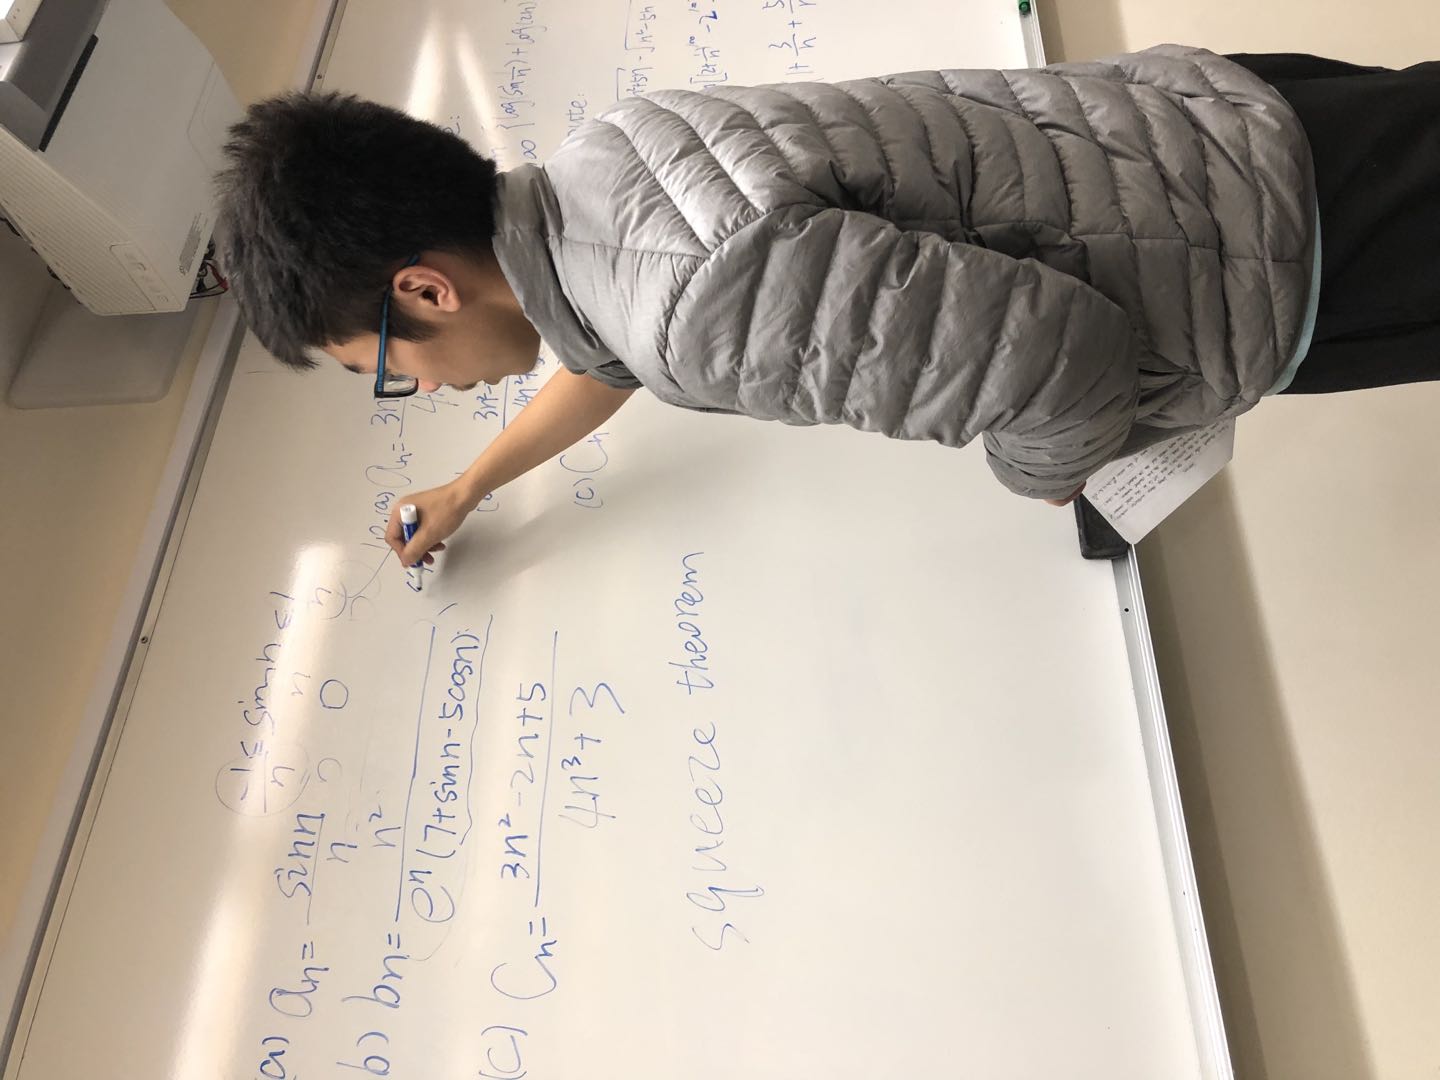 (a) an = sinn / n
-1/n ≤ sinn/n ≤ 1/n
0 0 0
b) bn = n² / e^n (7+sinn-5cosn)
(c) Cn = 3n²-2n+5 / 4n³+3
squeeze theorem
10.(a) an = 3n
4
3n²-
4n²+
(c) Cn
e:
∞ {log(sin 1/n) + log(2n)
ute:
n²+5n - √n²-5n
[(2+1/n)^100 - 2^10
1 + 3/n + 5